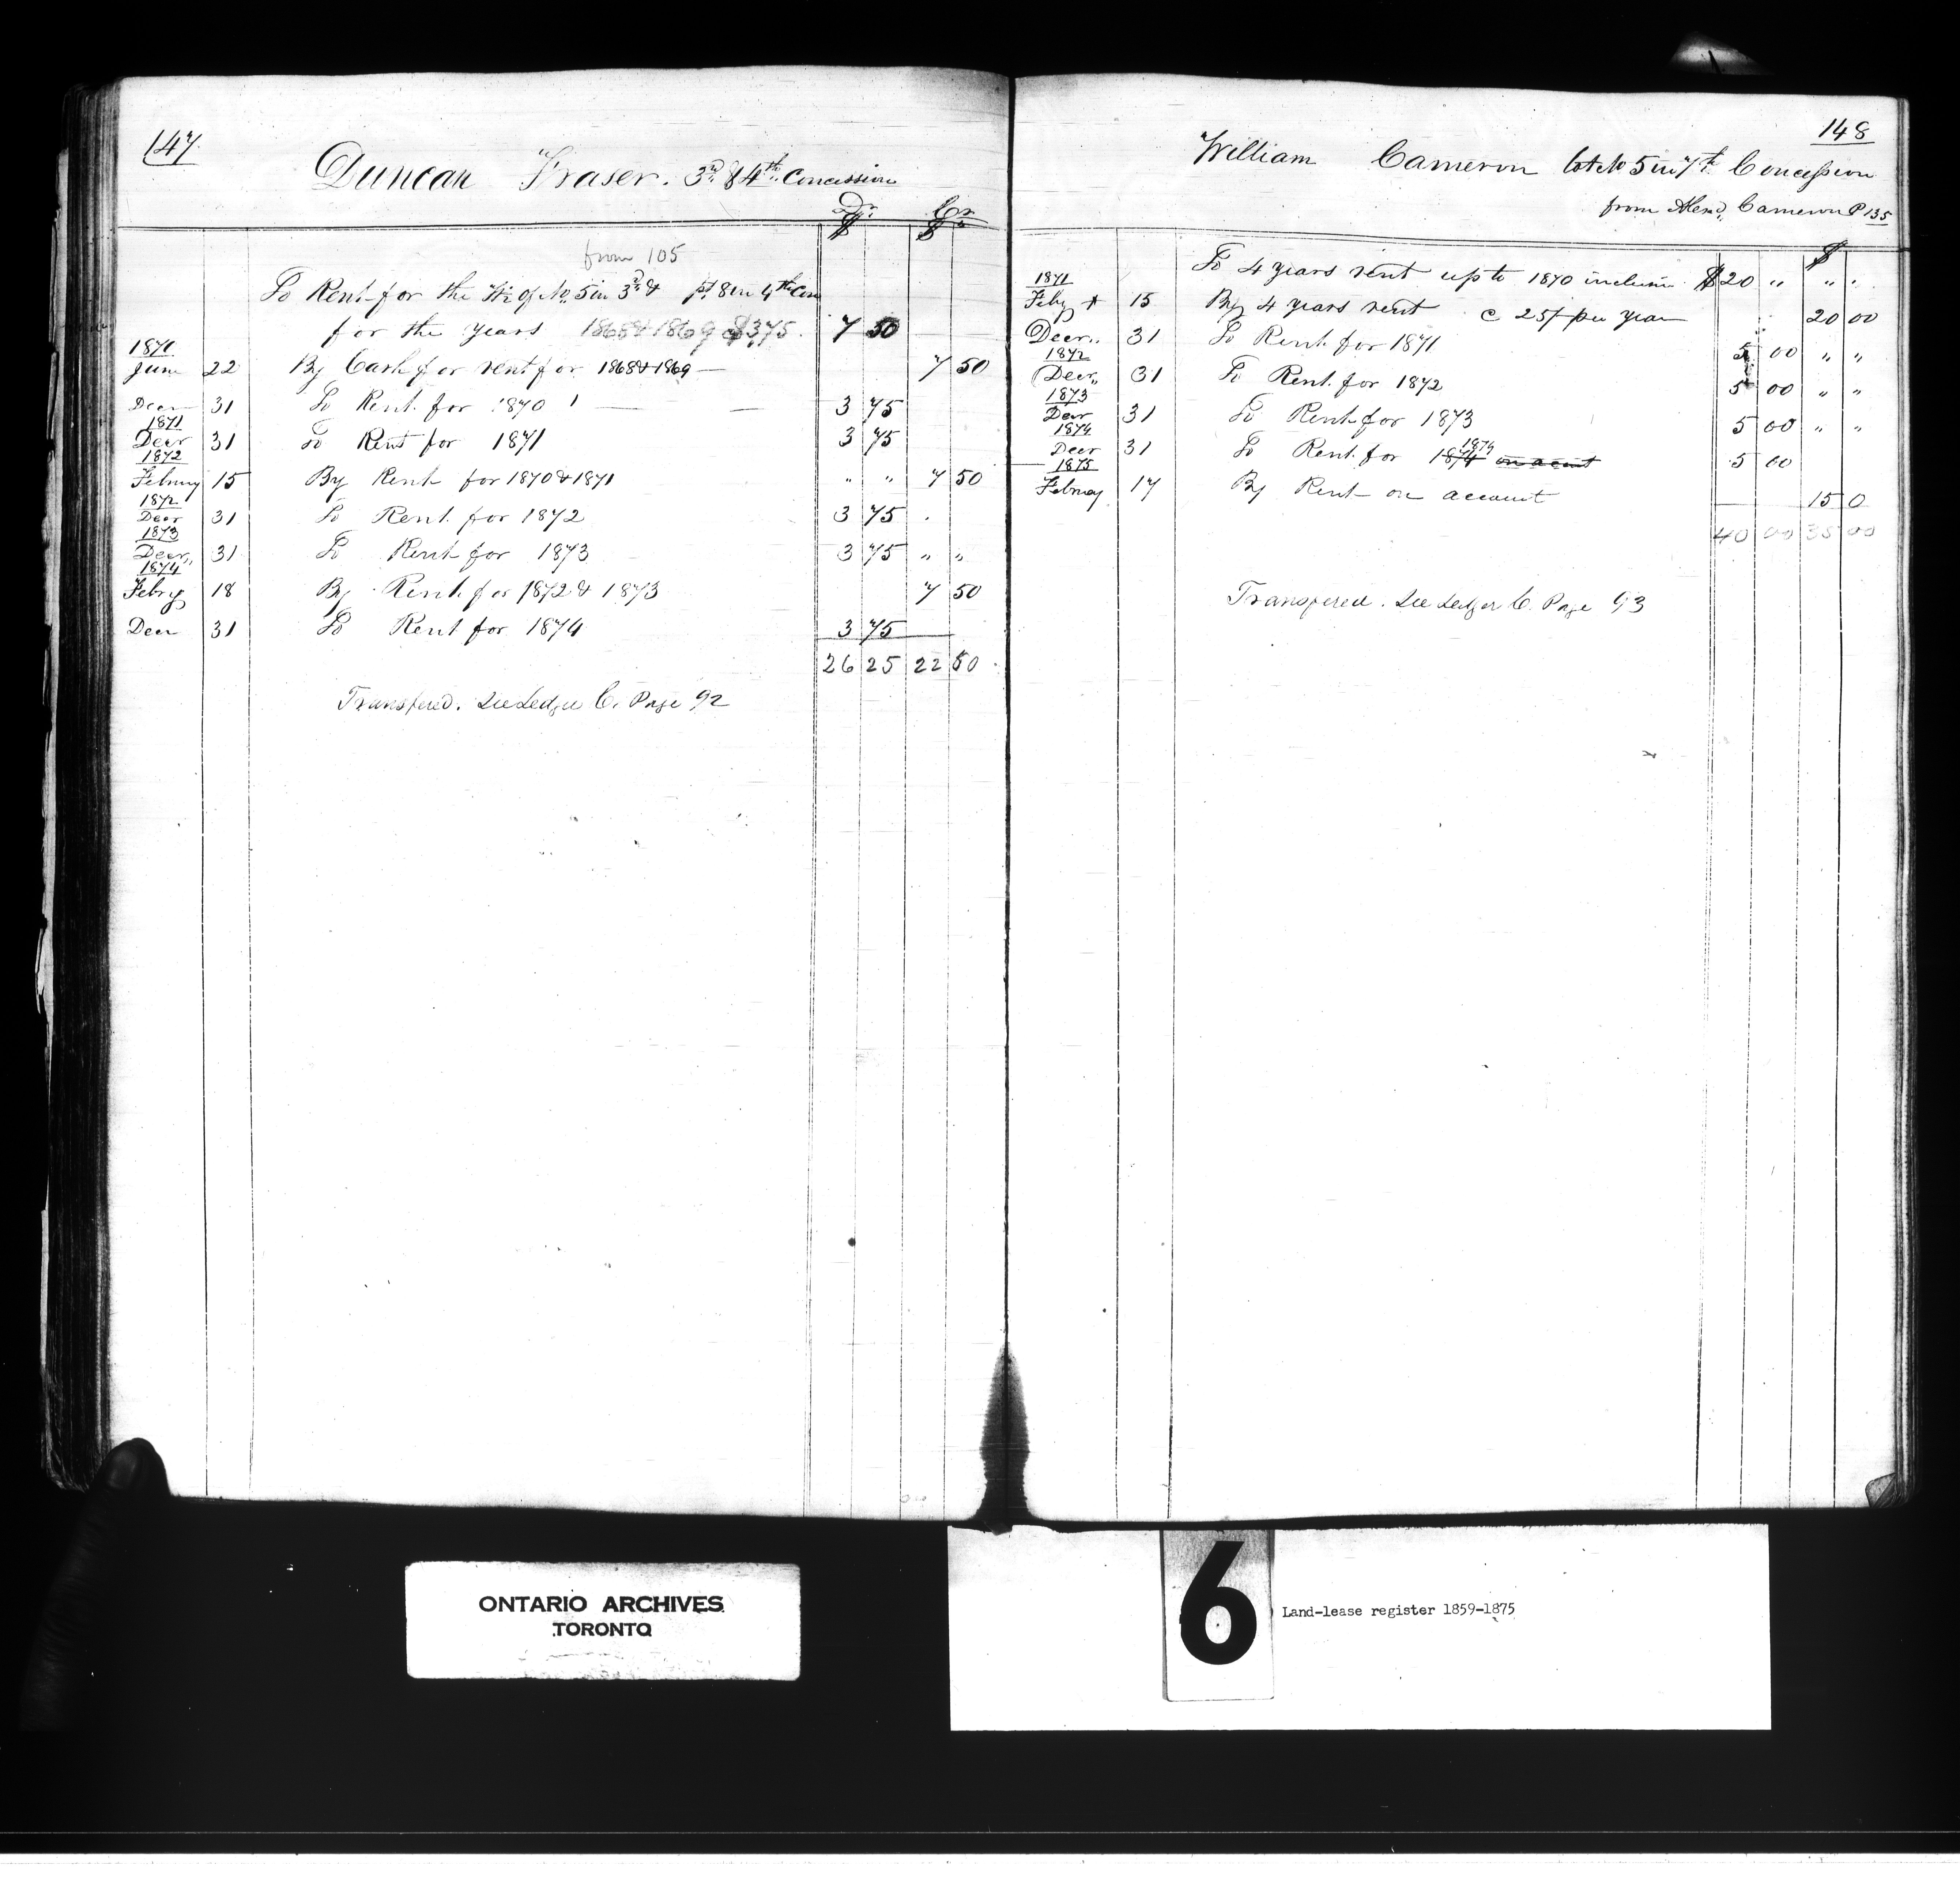 147.
Duncan Fraser. 3rd & 4th Concession
Dr. Cr
$ $
from 105
To Rent for the W½ of No. 5 in 3rd & pt. 8 in 4th Con
for the years 1868 & 1869 @ $375. 7 50
1870
June 22 By Cash for rent for 1868 & 1869 — 7 50
Decr 31 To Rent for 1870 — — 3 75
1871
Decr 31 To Rent for 1871 3 75
1872
Februy 15 By Rent for 1870 & 1871 " " 7 50
1872
Decr 31 To Rent for 1872 3 75
1873
Decr,, 31 To Rent for 1873 3 75 " "
1874
Febry 18 By Rent for 1872 & 1873 7 50
Decr 31 To Rent for 1874 3 75
26 25 22 50
Transfered. See Ledger C. Page 92
148
William Cameron Lot No 5 in 7th Concession
from Alexd. Cameron P 135
$
To 4 years rent up to 1870 inclusive $20 " " "
1871
Feby 15 By 4 years rent @ 25/ per year 20 00
Decr,, 31 To Rent for 1871 5 00 " "
1872
Decr,, 31 To Rent for 1872 5 00 " "
1873
Decr 31 To Rent for 1873 5 00 " "
1874
Decr 31 To Rent for 1874 1874 on acount 5 00
1875
Februay 17 By Rent on account 15 0
40 00 35 00
Transfered. See Ledger C. Page 93
ONTARIO ARCHIVES
TORONTO
6
Land-lease register 1859-1875